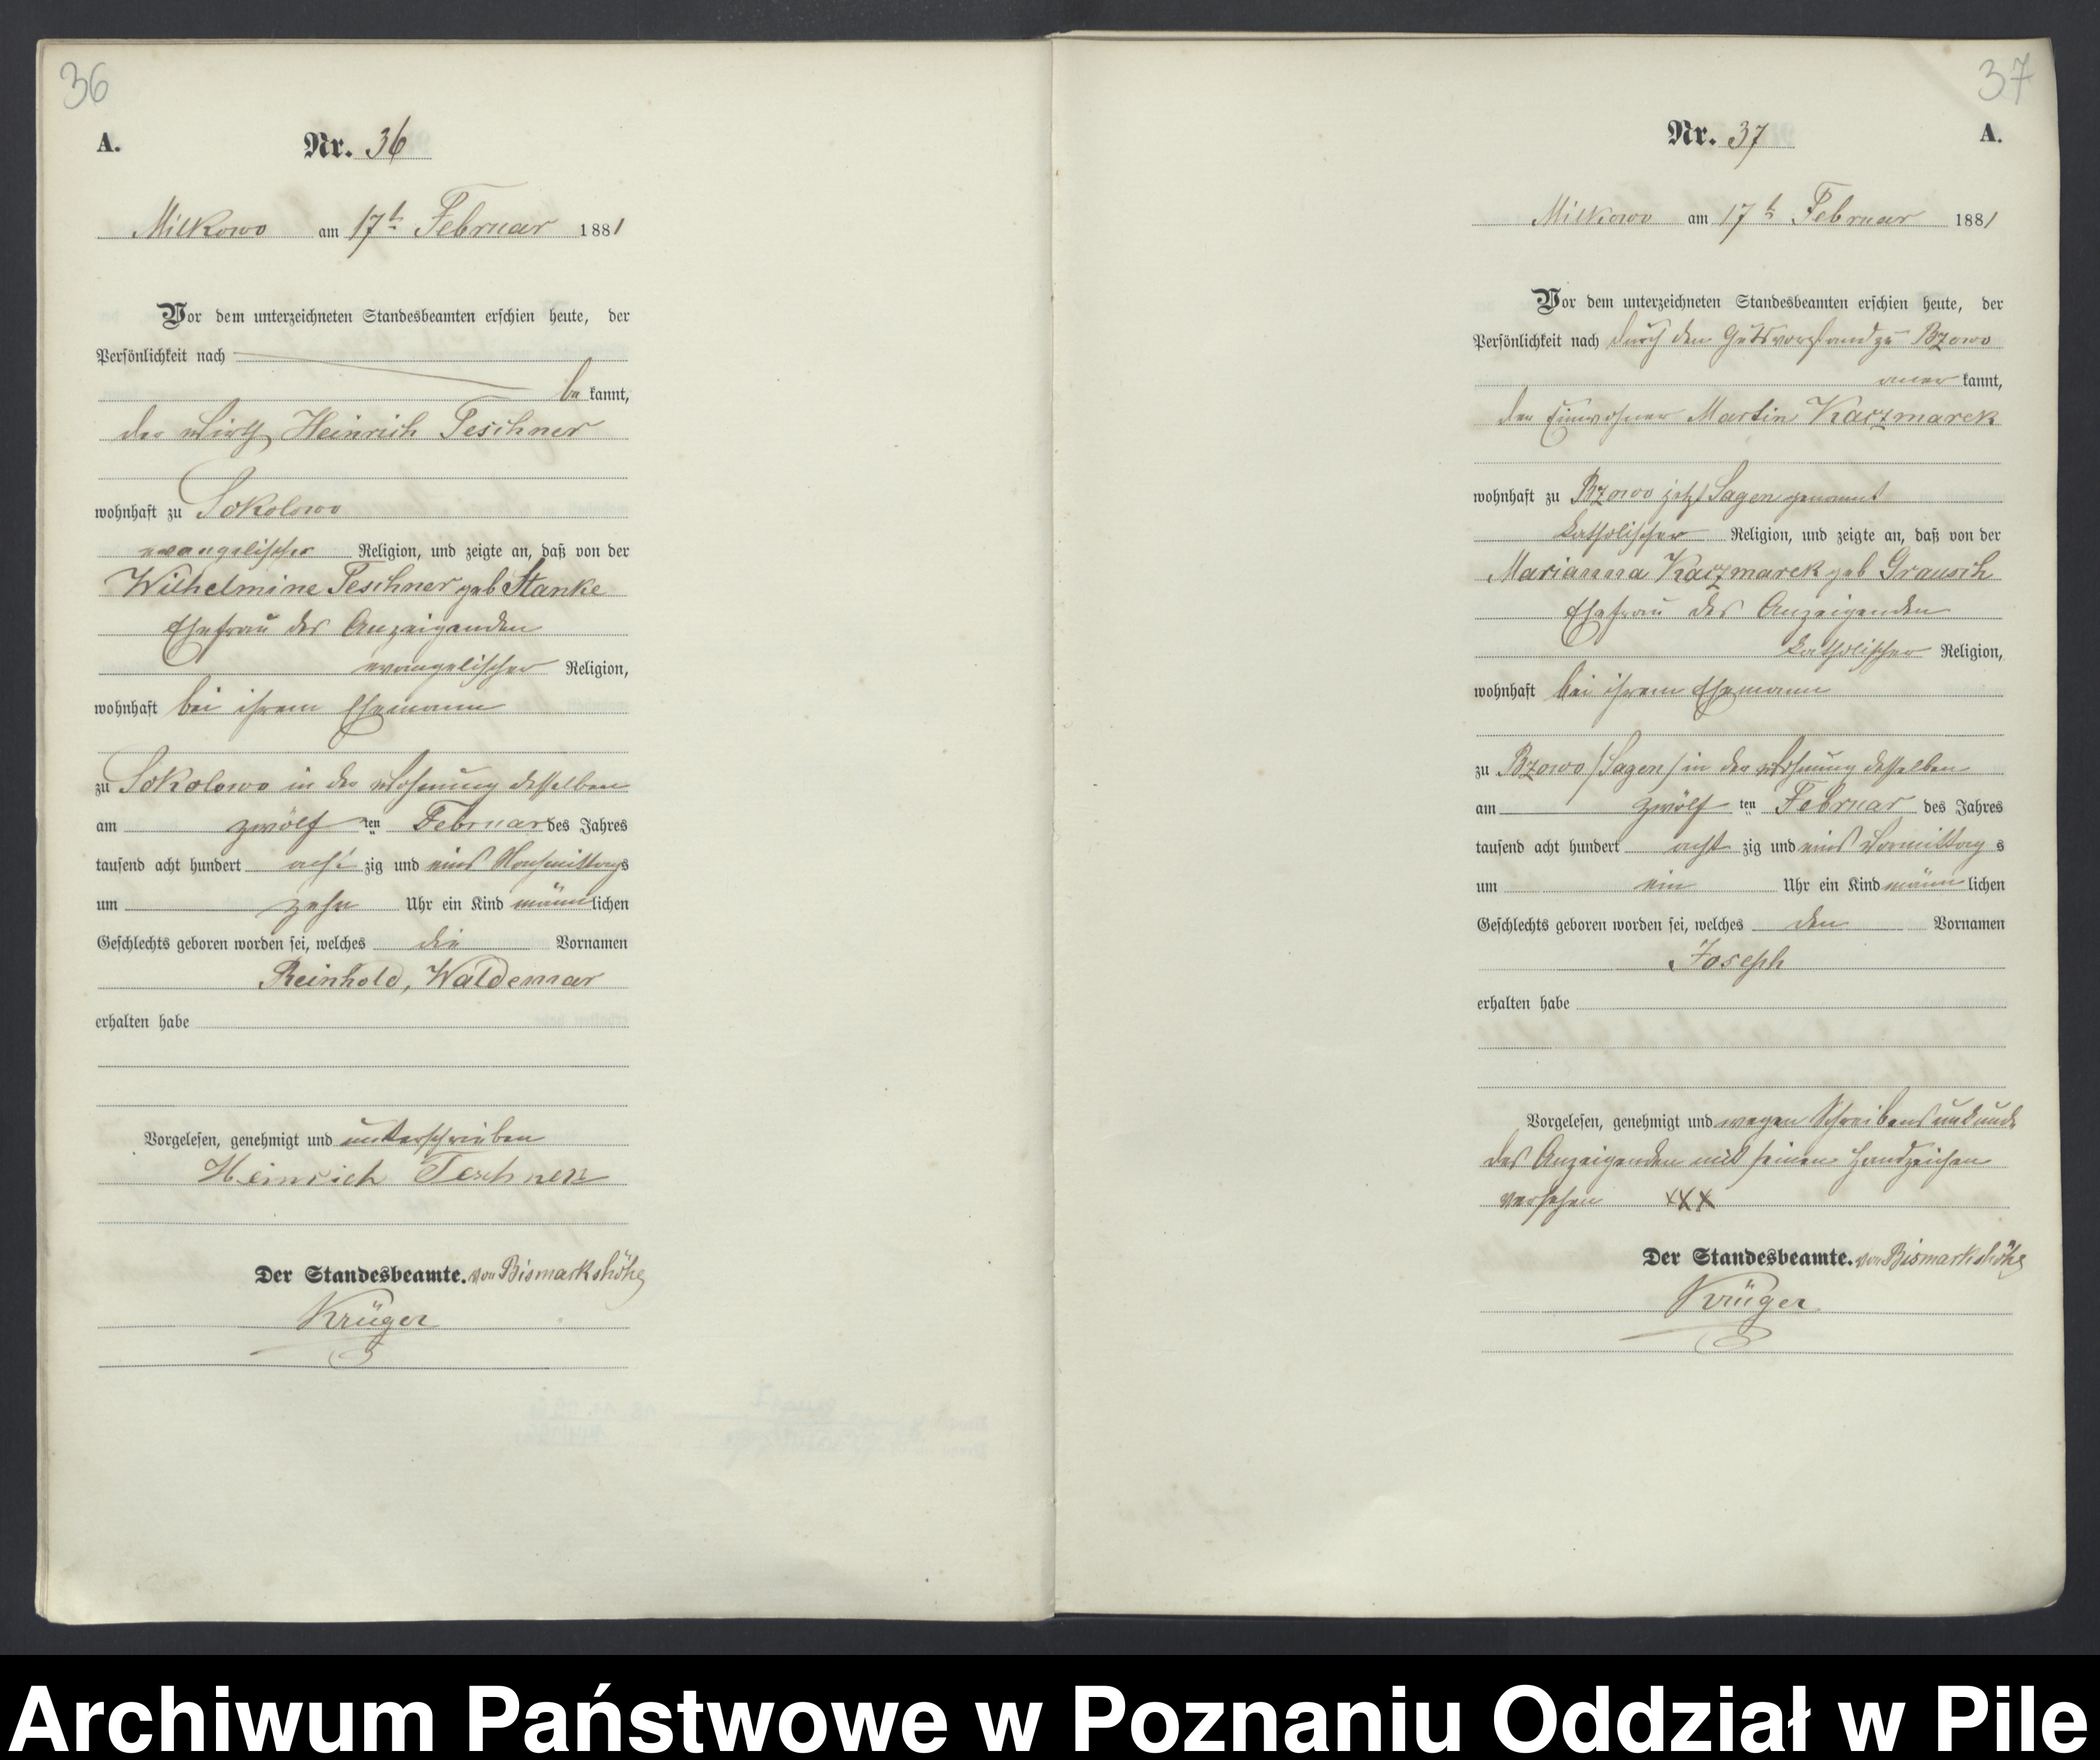 36
A.
Nr. 36
Milkowo am 17t Februar 1881
Vor dem unterzeichneten Standesbeamten erschien heute, der
Persönlichkeit nach
be kannt,
der Wirth Heinrich Teschner
wohnhaft zu Sokolowo
evangelischer Religion, und zeigte an, daß von der
Wilhelmine Teschner geb Stanke
Ehefrau des Anzeigenden
evangelischer Religion,
wohnhaft bei ihrem Ehemann
zu Sokolowo in der Wohnung desselben
am zwölf ten Februar des Jahres
tausend acht hundert acht zig und eins Nachmittags
um zehn Uhr ein Kind männlichen
Geschlechts geboren worden sei, welches die Vornamen
Reinhold, Waldemar
erhalten habe
Vorgelesen, genehmigt und unterschrieben
Heinrich Teschner
Der Standesbeamte. von Bismarkshöhe
Krüger
37
Nr. 37
A.
Milkowo am 17t Februar 1881
Vor dem unterzeichneten Standesbeamten erschien heute, der
Persönlichkeit nach durch den Gutsvorstand zu Bzowo
aner kannt,
der Einwohner Martin Kaczmarek
wohnhaft zu Bzowo jetzt Sagen genannt
katholischer Religion, und zeigte an, daß von der
Marianna Kaczmarek geb Grausch
Ehefrau des Anzeigenden
katholischer Religion,
wohnhaft bei ihrem Ehemann
zu Bzowo /Sagen/ in der Wohnung desselben
am zwölf ten Februar des Jahres
tausend acht hundert acht zig und eins Vormittag s
um ein Uhr ein Kind männ lichen
Geschlechts geboren worden sei, welches den Vornamen
Joseph
erhalten habe
Vorgelesen, genehmigt und wegen Schreibensunkunde
des Anzeigenden mit seinen Handzeichen
versehen XXX
Der Standesbeamte. von Bismarkshöhe
Krüger
Archiwum Państwowe w Poznaniu Oddział w Pile